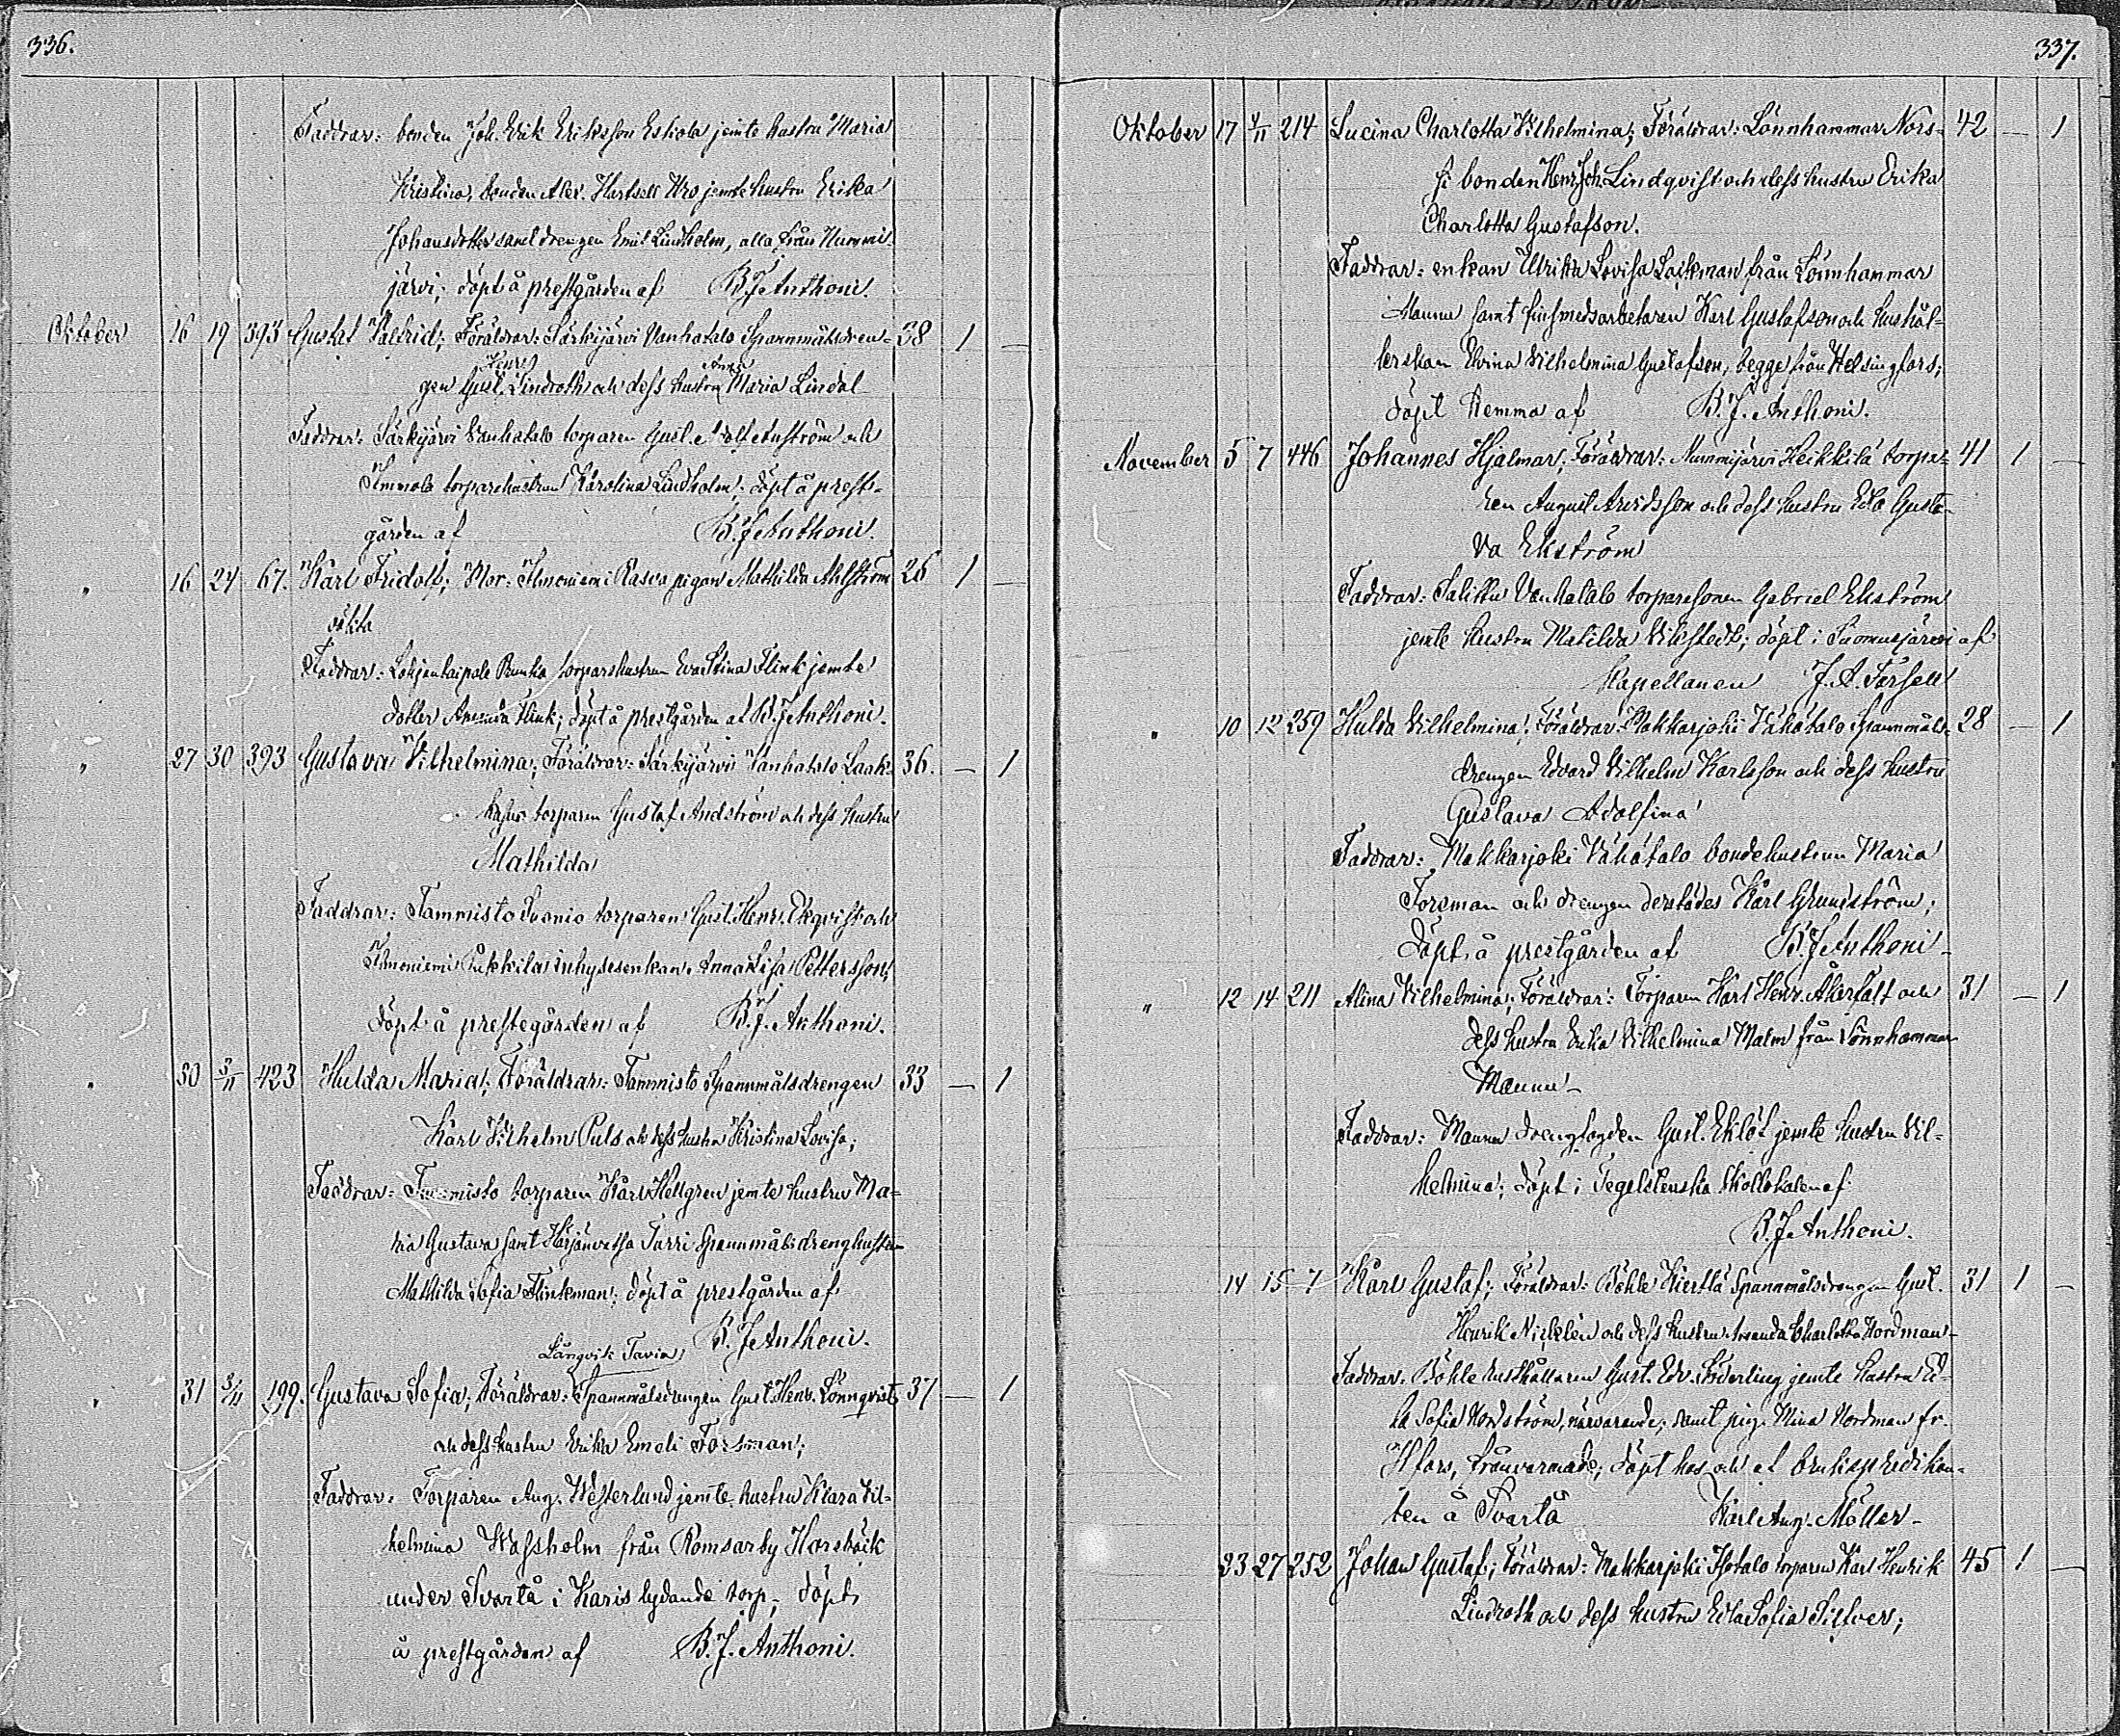 336.
Faddrar: bonden Joh. Erik Eriksson Eskola jemte hustru Maria
Kristina, bonden Alex. Hartsell Uro jemte hustru Erika
Johansdotter samt drengen Emil Lindholm, alla från Nummi-
järvi; döpt å prestgården af B. J. Anthoni.
Oktober 16 19 393 Gustaf Valfrid; Föräldrar: Särkijärvi Vanhatalo Spannmålsdren- 38 1 —
Henr. Anna
gen Gust. Lindroth och dess hustru Maria Lindal
Faddrar: Särkijärvi Vanhatalo torparen Gust. Adolf Anström och
Immola torparehustrun Karolina Lindholm; döpt å prest-
gården af B. J. Anthoni.
" 16 24 67. Karl Fridolf; Mor: Ilmoniemi Rasva pigan Mathilda Ahlström 26 1 —
oäkta
Faddrar: Lohjantaipale torparehustrun Eva Stina Flink jemte
dotter Amanda Flink; döpt å prestgården af B. J. Anthoni.
" 27 30 393 Gustava Vilhelmina; Föräldrar: Särkijärvi Vanhatalo Laak- 36. — 1
torparen Gustaf Andström och dess hustru
Mathilda
Faddrar: Tammisto Juonio torparen Gust. Henr. Ekqvist och
Ilmoniemi Pukkila inhysesenkan Anna Lisa Pettersson,
döpt å prestegården af B. J. Anthoni.
" 30 3/11 423 Hulda Maria; Föräldrar: Tammisto Spannmålsdrengen 33 — 1
Karl Vilhelm Puls och dess hustru Kristina Lovisa;
Faddrar: Tammisto torparen Karl Hellgren jemte hustru Ma-
ria Gustava samt Karjanvetsa Tarri Spannmålsdrenghustrun
Mathilda Sofia Flinkman; döpt å prestgården af
B. J. Anthoni.
Långvik Tavia
" 31 3/11 199. Gustava Sofia; Föräldrar: Spannmålsdrengen Gust. Henr. Lönnqvist 37 — 1
och dess hustru Erika Emeli Forsman;
Faddrar: Torparen Aug. Westerlund jemte hustru Klara Vil-
helmina Wassholm från Romsarby Horsbäck
under Svartå i Karis lydande torp; döpt
å prestgården af B. J. Anthoni.
337.
Oktober 17 4/11 214 Lucina Charlotta Vilhelmina; Föräldrar: Lönnhammar Nors- 42 — 1
si bonden Henr. Joh. Lindqvist och dess hustru Erika
Charlotta Gustafson.
Faddrar: enkan Ulrika Lovisa Lackman från Lönnhammar
Maunu samt finsmedsarbetaren Karl Gustafson och hushål-
lerskan Elvina Vilhelmina Gustafson, begge från Helsingfors;
döpt hemma af B. J. Anthoni.
November 5 7 446 Johannes Hjalmar; Föräldrar: Nummijärvi Heikkilä torpa- 41 1 —
ren August Arvidsson och dess hustru Eda Gusta-
va Ekström
Faddrar: Salittu Vanhatalo torparesonen Gabriel Ekström
jemte hustru Matilda Vikstedt; döpt i Suomusjärvi af
Kapellanen J. A. Forsell
" 10 12 259 Hulda Vilhelmina; Föräldrar: Makkarjoki Vähätalo Spannmåls- 28 — 1
drengen Edvard Vilhelm Karlsson och dess hustru
Gustava Adolfina
Faddrar: Makkarjoki Vähätalo bondehustrun Maria
Forsman och drengen derstädes Karl Grundström;
Döpt å prestgården af B. J. Anthoni
" 12 14 211 Alina Vilhelmina; Föräldrar: Torparen Karl Henr. Åkerfalt och 31 — 1
dess hustru Erika Vilhelmina Malm från Lönnhammar
Maunu
Faddrar: Maunu drengfogden Gust. Eklöf jemte hustru Vil-
helmina; döpt i Tegelstenska skollokalen af
B. J. Anthoni.
14 15 7 Karl Gustaf; Föräldrar: Böhle Kierllä Spannmålsdrengen Gust. 31 1 —
Henrik Nicklén och dess hustru Amanda Charlotta Nordman
Faddrar. Böhle husthållaren Gust. Edv. Söderling jemte hustru Ed-
la Sofia Nordström, närvarande; samt pig. Mina Nordman fr.
Hfors, frånvarande; döpt hos och af brukspredikan-
ten å Svartå Karl Aug. Möller
23 27 252 Johan Gustaf; Föräldrar: Makkarjoki Isotalo torparen Karl Henrik 45 1 —
Lindroth och dess hustru Edla Sofia Silfver;